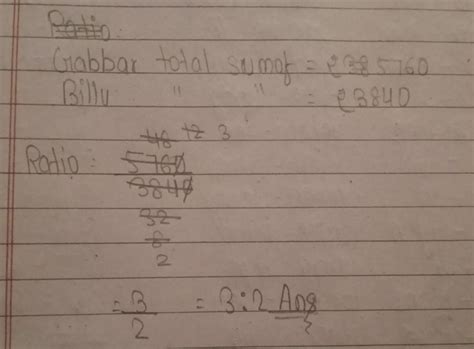 Ratio
Gabbar total sum of = ₹ 385760
Billu " " = ₹3840
48 12 3
Ratio : 5760
3840
32
8
2
= 3 = 3:2 Ans
2